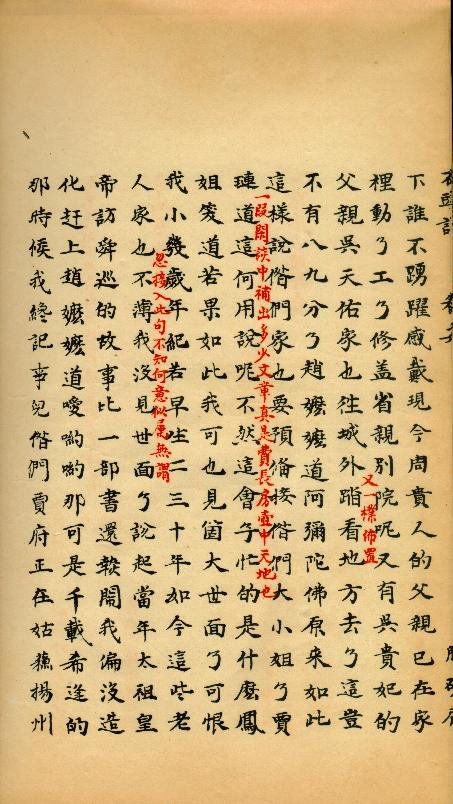 下誰不踴躍感戴現今周貴人的父親已在家
裡動了工了修盖省親別院呢又有吳貴妃的
又一樣佈置
父親吳天佑家也往城外踏看地方去了這豈
不有八九分了趙嬷嬷道阿彌陀佛原来如此
這樣說偺們家也要預俻接偺們大小姐了賈
一段閑談中補出多少文章真是費長房壺中天地也
璉道這何用說呢不然這會子忙的是什麽鳳
姐笑道若果如此我可也見箇大世面了可恨
我小幾歲年紀若早生二三十年如今這些老
忽接入此句不知何意似属無謂
人家也不薄我没見世面了說起當年太祖皇
帝訪舜巡的故事比一部書還熱鬧我偏没造
化赶上趙嬷嬷道噯喲喲那可是千載希逢的
那時候我纔記事兒偺們賈府正在姑蘓揚州